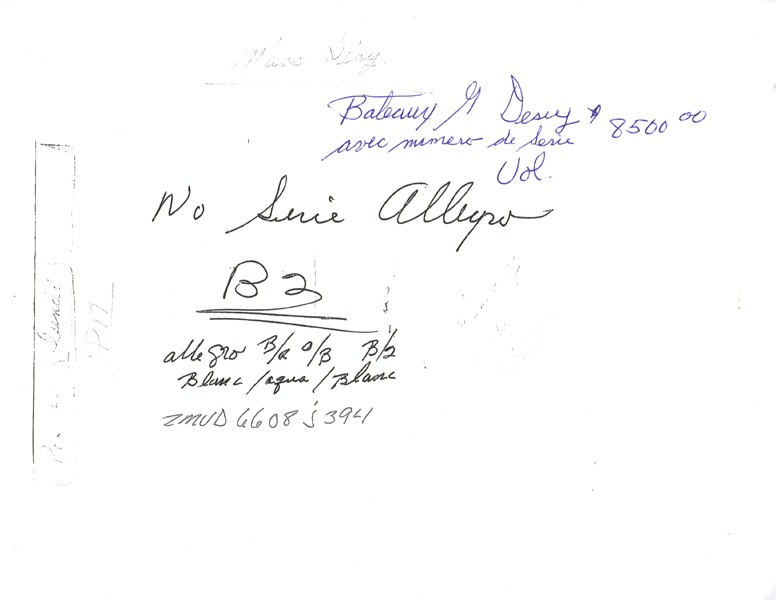 Bateaux G Desey $ 8500 00
avec numero de Serie
Vol.
No Serie Allegro
B 2
allegro B/a a/B B/2
Blanc / aqua / Blanc
ZMVD6608j394
P17